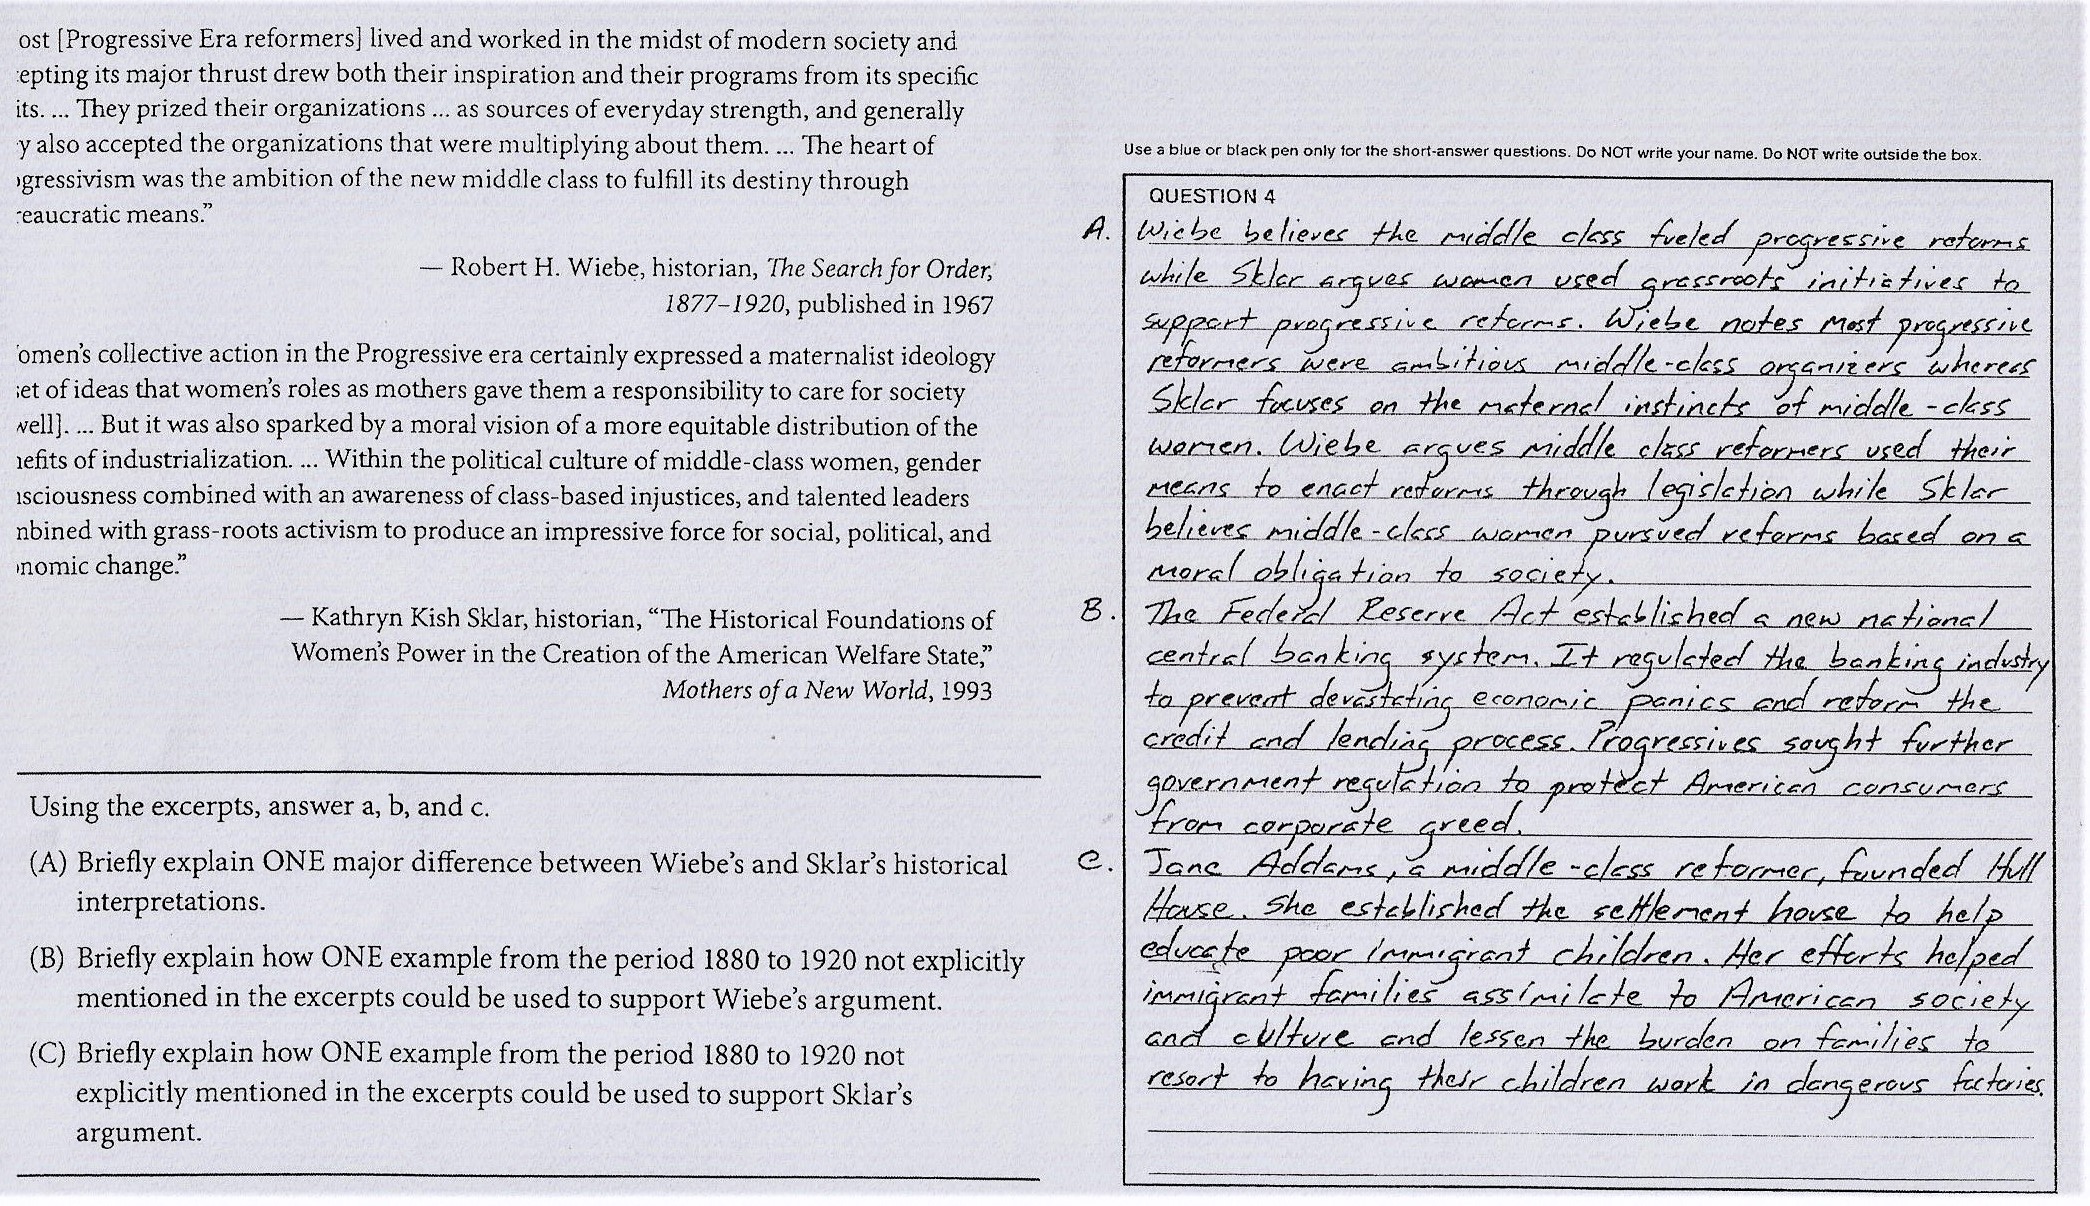 ost [Progressive Era reformers] lived and worked in the midst of modern society and
epting its major thrust drew both their inspiration and their programs from its specific
its. ... They prized their organizations ... as sources of everyday strength, and generally
y also accepted the organizations that were multiplying about them. ... The heart of
gressivism was the ambition of the new middle class to fulfill its destiny through
eaucratic means.”
— Robert H. Wiebe, historian, The Search for Order,
1877–1920, published in 1967
omen’s collective action in the Progressive era certainly expressed a maternalist ideology
et of ideas that women’s roles as mothers gave them a responsibility to care for society
well]. ... But it was also sparked by a moral vision of a more equitable distribution of the
nefits of industrialization. ... Within the political culture of middle-class women, gender
nsciousness combined with an awareness of class-based injustices, and talented leaders
mbined with grass-roots activism to produce an impressive force for social, political, and
onomic change.”
— Kathryn Kish Sklar, historian, “The Historical Foundations of
Women’s Power in the Creation of the American Welfare State,”
Mothers of a New World, 1993
Using the excerpts, answer a, b, and c.
(A) Briefly explain ONE major difference between Wiebe’s and Sklar’s historical
interpretations.
(B) Briefly explain how ONE example from the period 1880 to 1920 not explicitly
mentioned in the excerpts could be used to support Wiebe’s argument.
(C) Briefly explain how ONE example from the period 1880 to 1920 not
explicitly mentioned in the excerpts could be used to support Sklar’s
argument.
Use a blue or black pen only for the short-answer questions. Do NOT write your name. Do NOT write outside the box.
QUESTION 4
A. Wiebe believes the middle class fueled progressive reforms
while Sklar argues women used grassroots initiatives to
support progressive reforms. Wiebe notes most progressive
reformers were ambitious middle-class organizers whereas
Sklar focuses on the maternal instincts of middle-class
women. Wiebe argues middle class reformers used their
means to enact reforms through legislation while Sklar
believes middle-class women pursued reforms based on a
moral obligation to society.
B. The Federal Reserve Act established a new national
central banking system. It regulated the banking industry
to prevent devastating economic panics and reform the
credit and lending process. Progressives sought further
government regulation to protect American consumers
from corporate greed.
C. Jane Addams, a middle-class reformer, founded Hull
House. She established the settlement house to help
educate poor immigrant children. Her efforts helped
immigrant families assimilate to American society
and culture and lessen the burden on families to
resort to having their children work in dangerous factories.